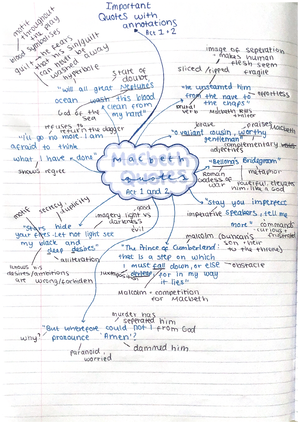 Important
Quotes with
annotations
Act 1 + 2
motif throughout
the play
blood symbolises
guilt → he fears
that his sin/guilt
can never be
washed away
hyperbole
state of
doubt
"Will all great Neptunes
ocean wash this blood
clean from
my hand"
God of the
Sea
refuses to
return the dagger
"I'll go no more. I am
afraid to think
what I have done"
shows regret
image of seperation
makes human
flesh seem
fragile
sliced/ripped
"He unseamed him
from the nave to
the chaps"
effortless
verb
Macbeth
brave
praises
Macbeth
"O valiant cousin, worthy
gentleman"
complementary
adjectives
"Bellona's Bridegroom"
Roman
Goddess of
war
metaphor
powerful, elevates
him like a God
Macbeth
Quotes
Act 1 and 2
"Stay you imperfect
speakers, tell me
more"
imperative
commands
curious +
frustrated
malcolm (Duncan's
son + heir
to the throne)
"The Prince of Cumberland:
that is a step on which
I must fall down, or else
o'erleap, for in my way
it lies"
obstacle
juxtaposition
Malcolm = competition
for Macbeth
good
imagery light vs
darkness
evil
motif
secrecy
duplicity
"Stars hide
your fires. Let not light see
my black and
deep desires"
alliteration
knows his
desires/ambitions
are wrong/forbidden
murder has
seperated him
"But wherefore could not I
pronounce 'Amen'?
from God
why?
paranoid
worried
damned him